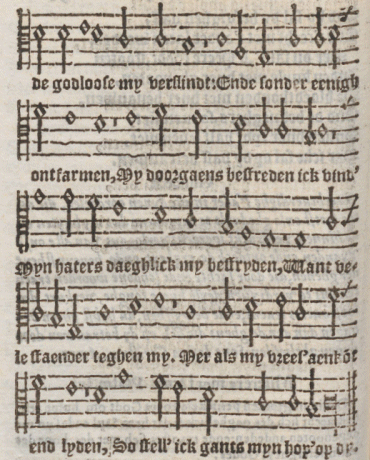 de godloose my verslindt: Ende sonder eenigh
ontfarmen, My doorgaens bestreden ick vind'
Myn haters daeghlick my bestryden, Want ve-
le staender teghen my. Mer als my vrees' aenk
end lyden, So stell' ick gants myn hop' op dy.